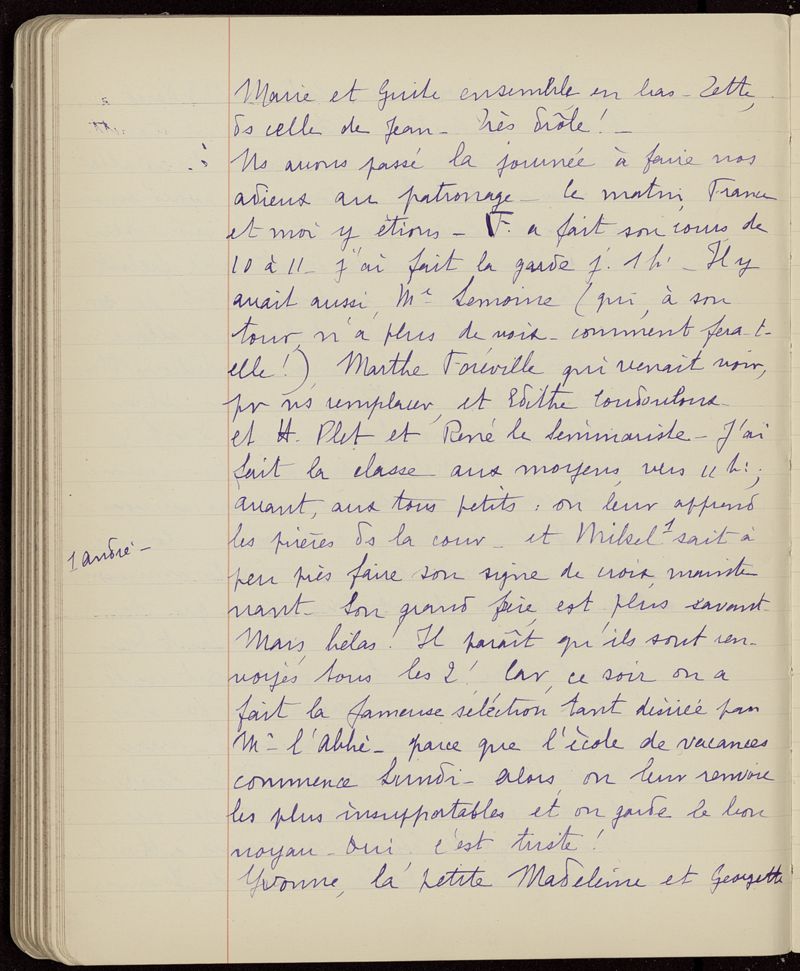 Marie et Guite ensemble en bas - Zette,
ds celle de Jean - Très drôle ! -
Ns avons passé la journée à faire nos
adieux au patronage - le matin, France
et moi y étions - F. a fait son cours de
10 à 11 - j'ai fait la garde j. 1h - Il y
avait aussi, Mr Lemoine (qui, à son
tour, n'a plus de voix - comment fera-t-
elle !) Marthe Foréville qui venait voir,
pr ns remplacer, et Edithe
et H. Plet et René le Séminariste - J'ai
fait la classe aux moyens, vers 11 h ;
avant, aux tous petits : on leur apprend
les prières ds la cour - et 1 sait à
peu près faire son signe de croix, mainte
nant - Son grand frère, est plus savant
Mais, hélas ! Il paraît qu'ils sont ren-
voyés tous les 2 ! Car, ce soir on a
fait la fameuse sélection, tant désirée par
Mr l'Abbé - parce que l'école de vacances
commence Lundi - alors, on leur renvoie
les plus insupportables et on garde le bon
noyau - Oui c'est triste !
Yvonne, la petite Madeleine et Georgette
1 André -